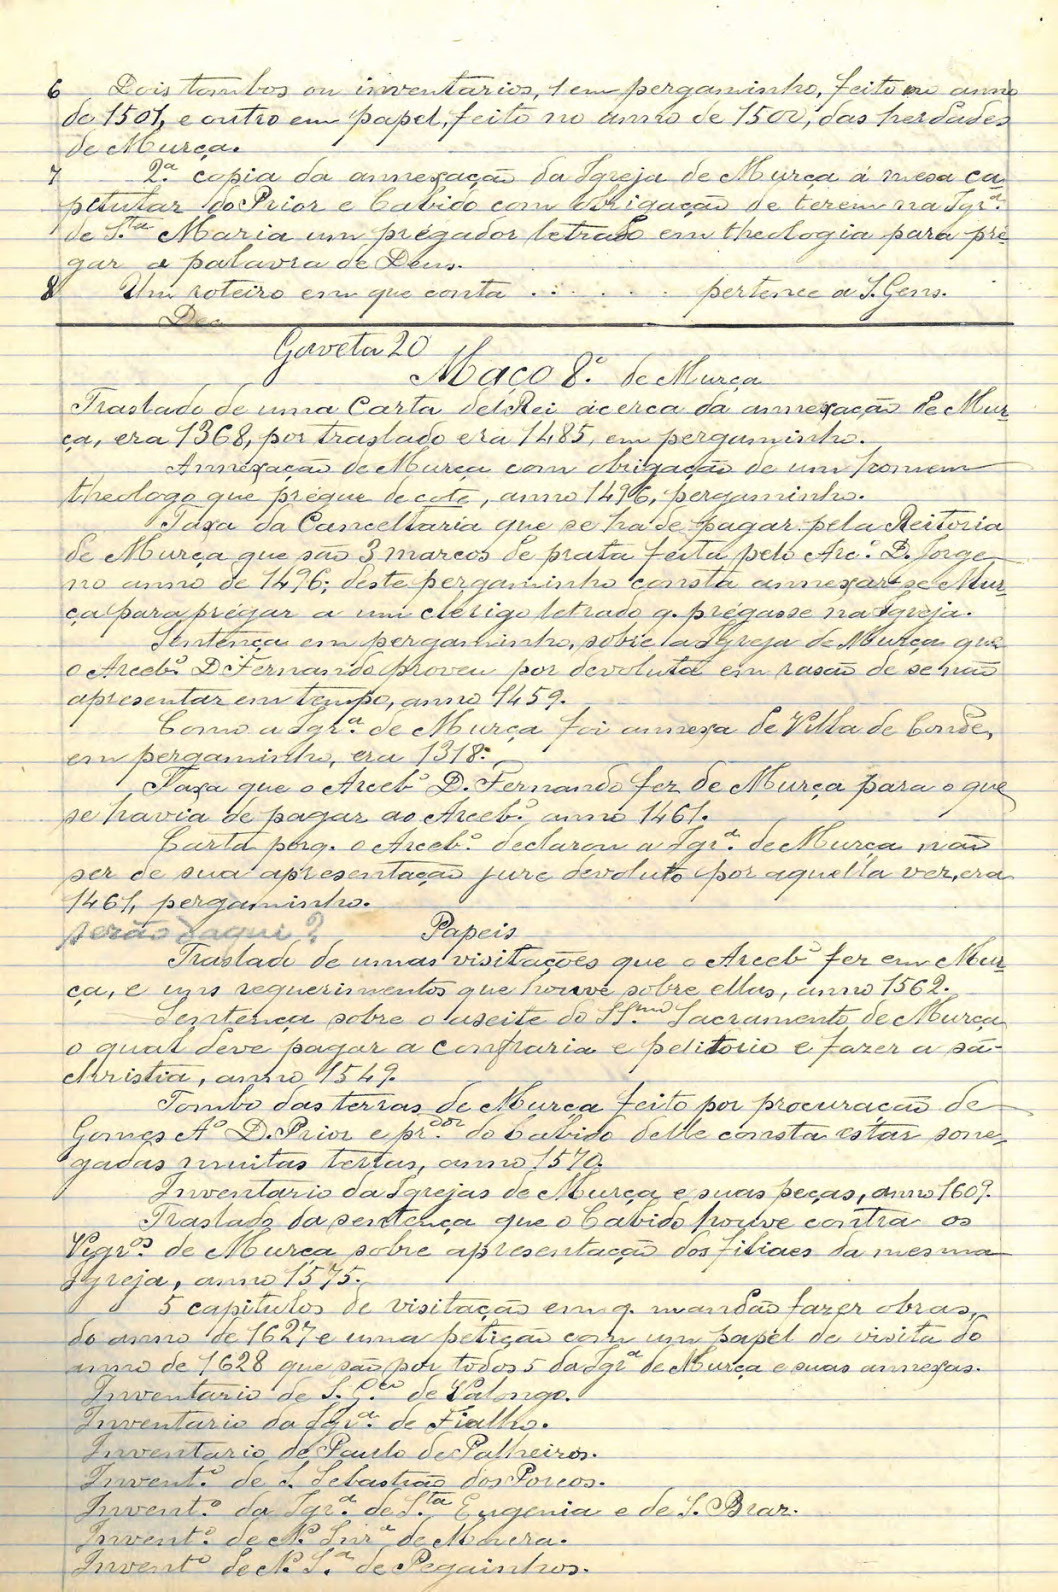 6 Dois tombos ou inventarios, 1 em pergaminho, feito no anno
de 1501, e outro em papel, feito no anno de 1500, das herdades
de Murça.
7 2.ª copia da annexação da Igreja de Murça á mesa ca-
pitular do Prior e Cabido com obrigação de terem na Igr.ª
de S.ta Maria um prégador letrado em theologia para pré-
gar a palavra de Deus.
8 Um roteiro em que conta . . . . . . pertence a S. Gens.
Dec
Gaveta 20
Maço 8.º de Murça
Traslado de uma Carta del Rei ácerca da annexação de Mur-
ça, era 1368, por traslado era 1485, em pergaminho.
Annexação de Murça com obrigação de um homem
theologo que prégue de cote, anno 1496, pergaminho.
Taxa da Cancellaria que se ha de pagar pela Reitoria
de Murça que são 3 marcos de prata feita pelo Arc.º D. Jorge
no anno de 1496; deste pergaminho consta annexar-se Mur-
ça para prégar a um clérigo letrado q. prégasse na Igreja.
Sentença em pergaminho, sobre a Igreja de Murça que
o Arceb.º D. Fernando proveu por devoluta em rasão de se não
apresentar em tempo, anno 1459.
Como a Igr.ª de Murça foi annexa de Villa de Conde,
em pergaminho, era 1318.
Taxa que o Arceb.º D. Fernando fez de Murça para o que
se havia de pagar ao Arceb.º, anno 1461.
Carta porq. o Arceb.º declarou a Igr.ª de Murça não
ser de sua apresentação jure devoluto por aquella vez, era
1461, pergaminho.
serão daqui? Papeis
Traslado de umas visitações que o Arceb.º fez em Mur-
ça, e uns requerimentos que houve sobre ellas, anno 1562.
Sentença sobre o aseite do SS.mo Sacramento de Murça
o qual deve pagar a confraria e petitorio e fazer a sa-
christia, anno 1549.
Tombo das terras de Murça feito por procuração de
Gomes A.º D. Prior e pr.dor do Cabido delle consta estar sone-
gadas muitas terras, anno 1570.
Inventario da Igrejas de Murça e suas peças, anno 1609.
Traslado da sentença que o Cabido houve contra os
Vigr.os de Murça sobre apresentação dos filiaes da mesma
Igreja, anno 1575.
5 capitulos de visitação em q. mandão fazer obras,
do anno de 1627 e uma petição com um papel de visita do
anno de 1628 que são por todos 5 da Igr.ª de Murça e suas annexas.
Inventario de S. de Valongo.
Inventario da Igr.ª de Fialho.
Inventario de Paulo de Palheiros.
Invent.º de S. Sebastião dos Porcos.
Invent.º da Igr.ª de S.ta Eugenia e de S. Braz.
Invent.º de N. Snr.ª de
Invent.º de N. S.ª de Pegainhos.